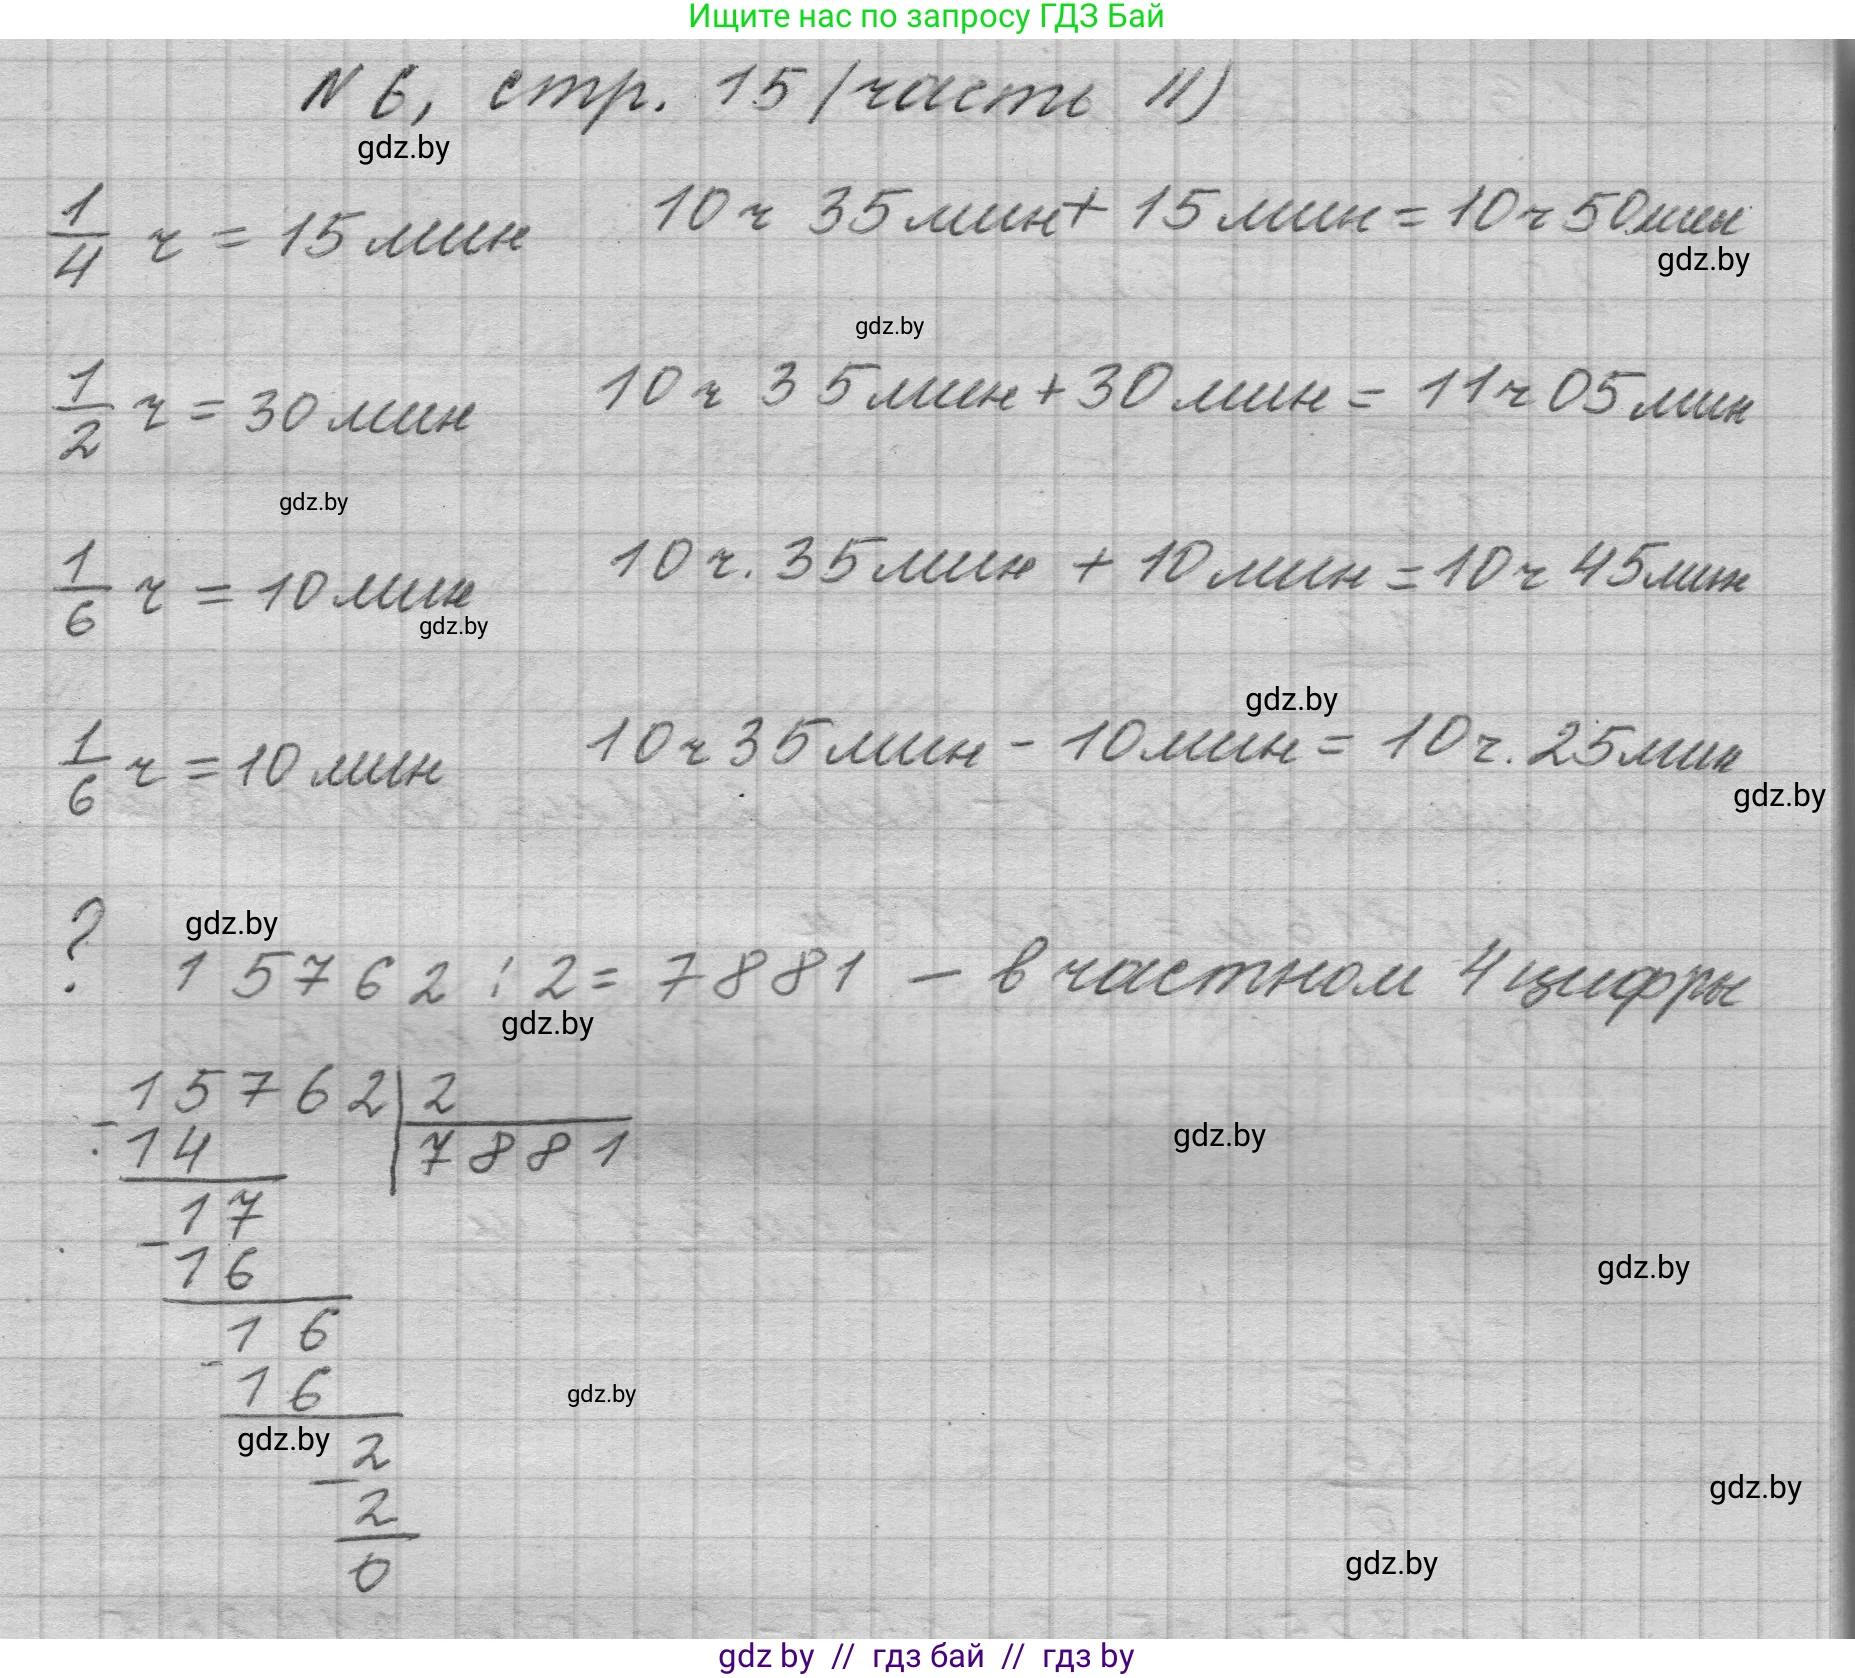 Ищите нас по запросу ГДЗ Бай
N 6, стр. 15 (часть II)
gdz.by
1/4 ч = 15 мин 10 ч 35 мин + 15 мин = 10 ч 50 мин
gdz.by
gdz.by
1/2 ч = 30 мин 10 ч 35 мин + 30 мин = 11 ч 05 мин
gdz.by
1/6 ч = 10 мин 10 ч. 35 мин + 10 мин = 10 ч 45 мин
gdz.by
gdz.by
1/6 ч = 10 мин 10 ч 35 мин - 10 мин = 10 ч. 25 мин
gdz.by
gdz.by
? 15762 : 2 = 7881 – в частном 4 цифры
gdz.by
15762 | 2
- 14 | 7881
gdz.by
17
- 16
gdz.by
16
- 16
gdz.by
gdz.by
2
- 2
gdz.by
0
gdz.by
gdz by // гдз бай // гдз by